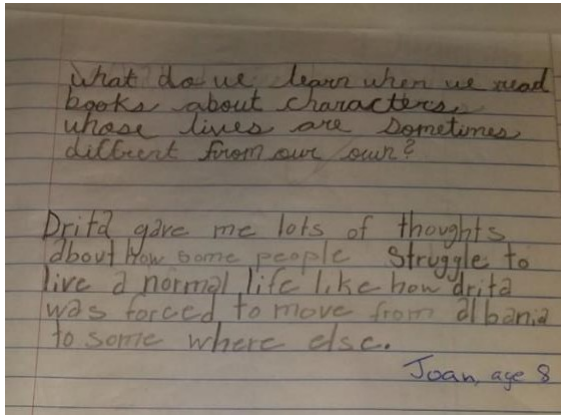 What do we learn when we read
books about characters
whose lives are sometimes
diffrent from our own?
Drita gave me lots of thoughts
about how some people struggle to
live a normal life like how drita
was forced to move from albania
to some where else.
Joan, age 8